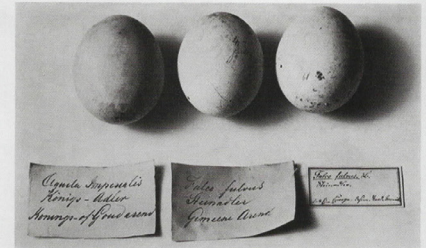 Aquila Imperialis
Königs-Adler
Konings- of Goud arend
Falco fulvus
Steinadler
Gemeene Arend
Falco fulvus, L.